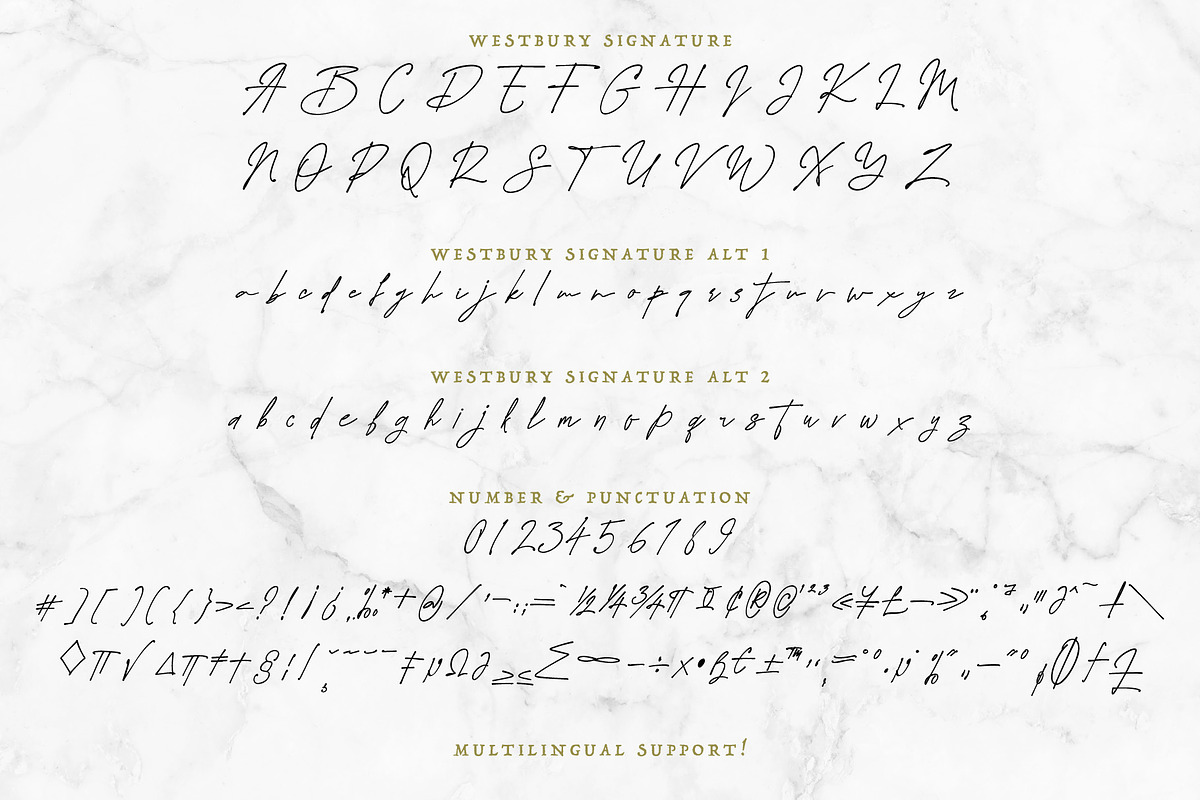 WESTBURY SIGNATURE
A B C D E F G H I J K L M
N O P Q R S T U V W X Y Z
WESTBURY SIGNATURE ALT 1
a b c d e f g h i j k l m n o p q r s t u v w x y z
WESTBURY SIGNATURE ALT 2
a b c d e f g h i j k l m n o p q r s t u v w x y z
NUMBER & PUNCTUATION
0 1 2 3 4 5 6 7 8 9
# ] [ ) ( { } > < ? ! ¡ ¿ * + @ / ' – : ; = ½ ¼ ¾ ¢ ® © ¹ ² ³ « ¥ £ ¬ » \
◊ π √ ∆ π ≠ † § ¦ ‡ µ Ω ∂ ≥ ≤ ∑ ∞ − ÷ × • ß € ± ™
MULTILINGUAL SUPPORT!